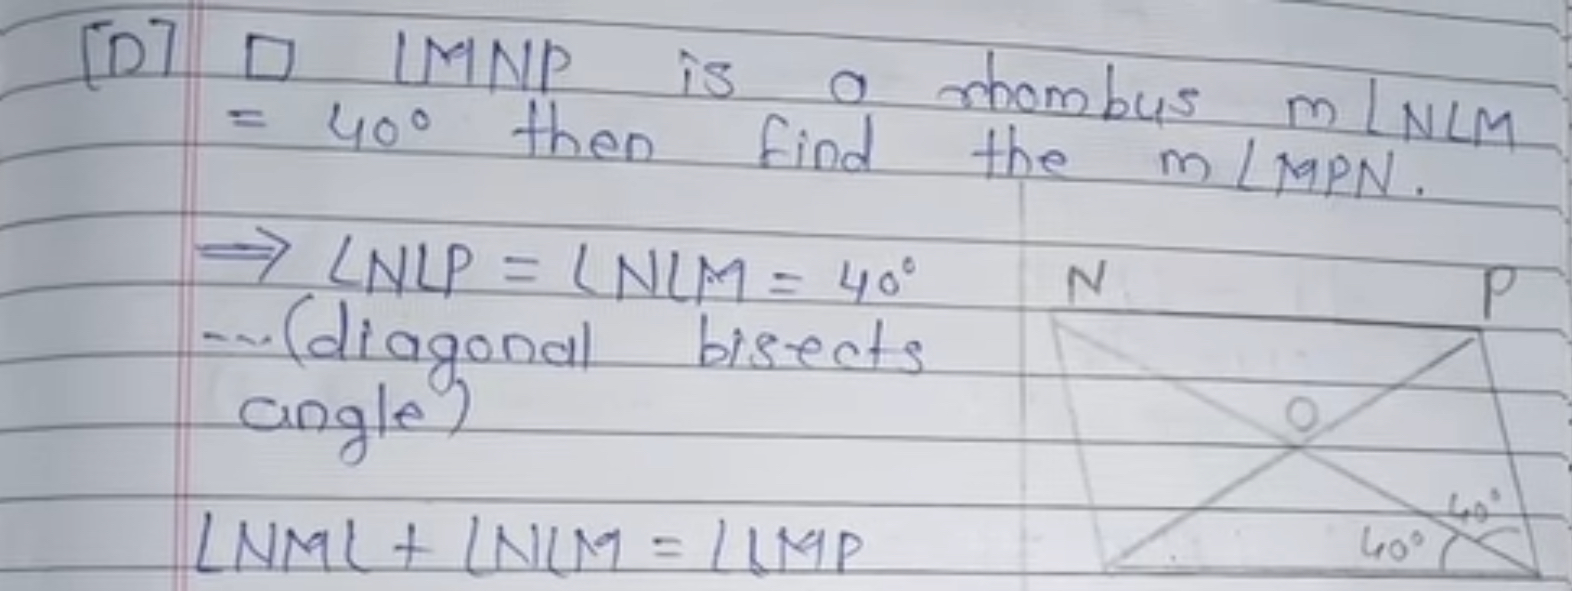 [D] □ LMNP is a rhombus m∠NLM
= 40° then find the m∠MPN.
⇒ ∠NLP = ∠NLM = 40°
...(diagonal bisects
angle)
∠NML + ∠NLM = ∠LMP
N P
O
40°
40°